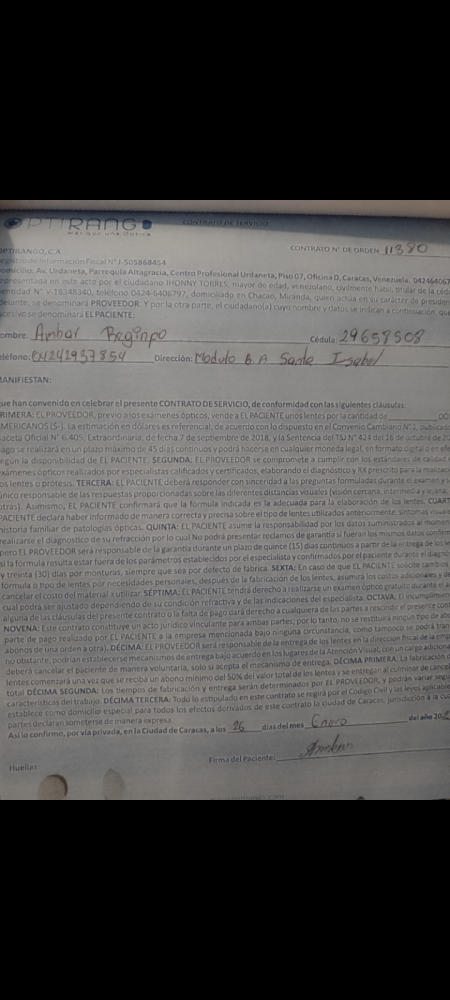 OPTIRANGO
MAS QUE UNA ÓPTICA
CONTRATO DE SERVICIO
CONTRATO N° DE ORDEN 11380
OPTIRANGO, C.A
Registro de Información Fiscal N° J-505868454
Domicilio: Av. Urdaneta, Parroquia Altagracia, Centro Profesional Urdaneta, Piso 07, Oficina D, Caracas, Venezuela.
representada en este acto por el ciudadano JHONNY TORRES, mayor de edad, venezolano, civilmente hábil, titular de la
identidad N° V-18348340, teléfono 0424-6406797, domiciliado en Chacao, Miranda, quien actúa en su carácter de
se denominará PROVEEDOR. Y por la otra parte, el ciudadano(a) cuyo nombre y datos se indican a continuación,
se denominará EL PACIENTE:
ombre: Ambar Cédula: 29658508
eléfono: 04241937854 Dirección: Modulo 6.A Santa Isabel
MANIFIESTAN:
que han convenido en celebrar el presente CONTRATO DE SERVICIO, de conformidad con las siguientes cláusulas:
RIMERA: EL PROVEEDOR, previo a los exámenes ópticos, vende a EL PACIENTE unos lentes por la cantidad de
AMERICANOS ($-). La estimación en dólares es referencial, de acuerdo con lo dispuesto en el Convenio Cambiario N°1,
aceta Oficial N° 6.405, Extraordinaria, de fecha 7 de septiembre de 2018, y la Sentencia del TSJ N° 424 del 16 de octubre de
ago se realizará en un plazo máximo de 45 días continuos y podrá hacerse en cualquier moneda legal, en formato digital o en
egún la disponibilidad de EL PACIENTE. SEGUNDA: EL PROVEEDOR se compromete a cumplir con los estándares de calidad
exámenes ópticos realizados por especialistas calificados y certificados, elaborando el diagnóstico y RX prescrito para la
os lentes o prótesis. TERCERA: EL PACIENTE deberá responder con sinceridad a las preguntas formuladas durante el examen y
único responsable de las respuestas proporcionadas sobre las diferentes distancias visuales (visión cercana, intermedia y lejana,
otras). Asimismo, EL PACIENTE confirmará que la fórmula indicada es la adecuada para la elaboración de los lentes. CUART
PACIENTE declara haber informado de manera correcta y precisa sobre el tipo de lentes utilizados anteriormente, síntomas
historia familiar de patologías ópticas. QUINTA: EL PACIENTE asume la responsabilidad por los datos suministrados al
realizarse el diagnostico de su refracción por lo cual No podrá presentar reclamos de garantía si fueran los mismos datos
pero EL PROVEEDOR será responsable de la garantía durante un plazo de quince (15) días continuos a partir de la entrega de los
si la fórmula resulta estar fuera de los parámetros establecidos por el especialista y confirmados por el paciente durante el
y treinta (30) días por monturas, siempre que sea por defecto de fábrica. SEXTA: En caso de que EL PACIENTE solicite cambios
fórmula o tipo de lentes por necesidades personales, después de la fabricación de los lentes, asumirá los costos adicionales y
cancelar el costo del material a utilizar. SÉPTIMA: EL PACIENTE tendrá derecho a realizarse un examen óptico gratuito durante el
cual podrá ser ajustado dependiendo de su condición refractiva y de las indicaciones del especialista. OCTAVA: El
alguna de las cláusulas del presente contrato o la falta de pago dará derecho a cualquiera de las partes a rescindir el presente
NOVENA: Este contrato constituye un acto jurídico vinculante para ambas partes; por lo tanto, no se restituirá ningún tipo de
parte de pago realizado por EL PACIENTE a la empresa mencionada bajo ninguna circunstancia, como tampoco se podrá
abonos de una orden a otra). DÉCIMA: EL PROVEEDOR será responsable de la entrega de los lentes en la dirección fiscal de la
no obstante, podrían establecerse mecanismos de entrega bajo acuerdo en los lugares de la Atención Visual, con un cargo
deberá cancelar el paciente de manera voluntaria, solo si acepta el mecanismo de entrega. DÉCIMA PRIMERA: La fabricación
lentes comenzará una vez que se reciba un abono mínimo del 50% del valor total de los lentes y se entregan al culminar de
total DÉCIMA SEGUNDA: Los tiempos de fabricación y entrega serán determinados por EL PROVEEDOR, y podrán variar
características del trabajo. DÉCIMA TERCERA: Todo lo estipulado en este contrato se regirá por el Código Civil y las leyes
establece como domicilio especial para todos los efectos derivados de este contrato la ciudad de Caracas, jurisdicción a la
partes declaran someterse de manera expresa.
Así lo confirmo, por vía privada, en la Ciudad de Caracas, a los 26 días del mes Enero del año
Huellas: Firma del Paciente: Ambar